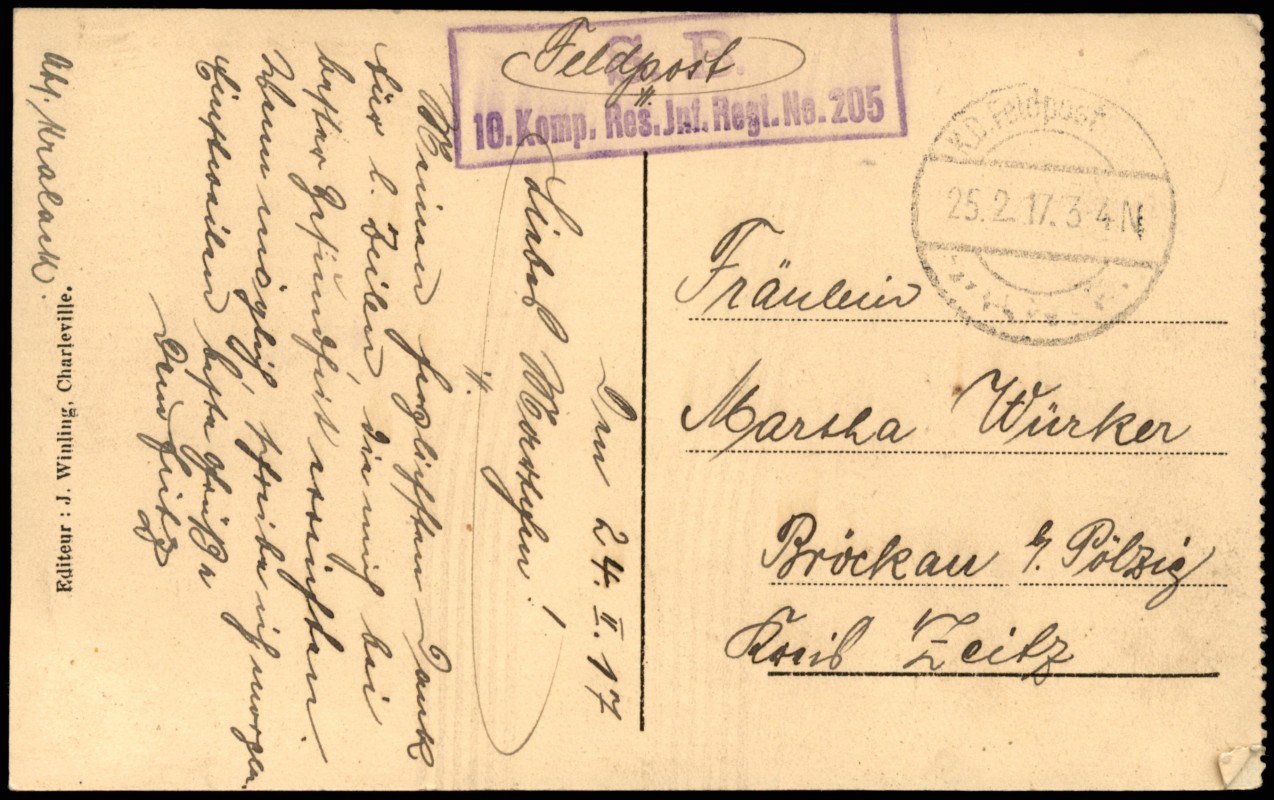 Feldpost
S. B.
10. Komp. Res. Inf. Regt. No. 205
K.D. Feldpost
25.2.17. 3-4 N
Fräulein
Martha Würker
Bröckau b/ Pölzig
Kreis Zeitz
Den 24. II. 17
Liebes Marthchen!
Meinen herzlichsten Dank
für l. Zeilen, die mich bei
bester Gesundheit erreichten.
Wenn möglich, schreibe ich morgen.
Einstweilen beste Grüße
Dein Fritz
Editeur : J. Winling, Charleville.